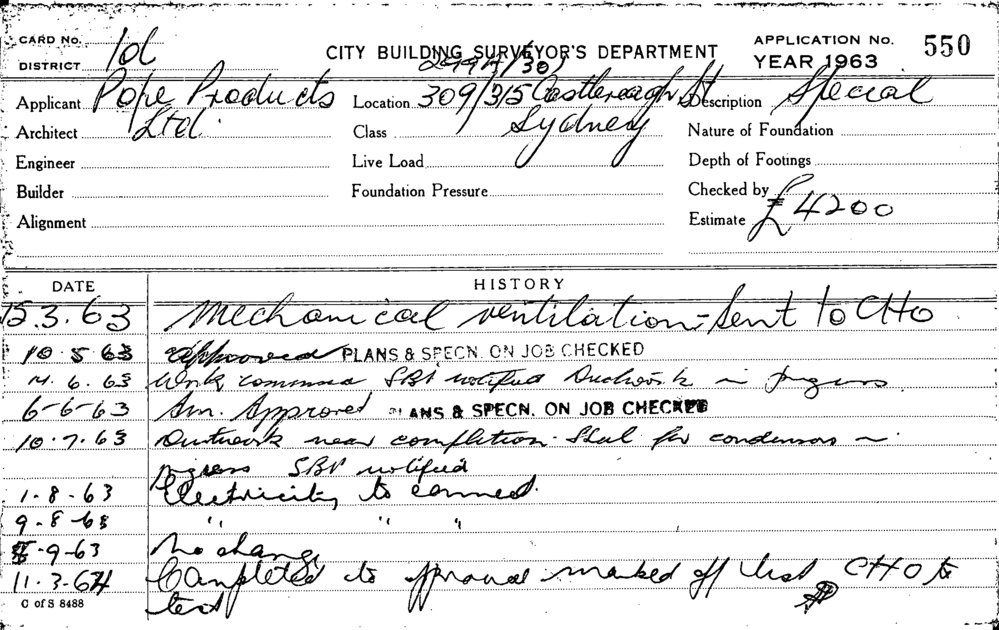 CARD No. 1d
CITY BUILDING SURVEYOR'S DEPARTMENT
APPLICATION No. 550
DISTRICT
YEAR 1963
Applicant Pope Products
Location 309/315 Castlereagh St
Description Special
Architect Ltd.
Class Sydney
Nature of Foundation
Engineer
Live Load
Depth of Footings
Builder
Foundation Pressure
Checked by
Alignment
Estimate £4200
DATE HISTORY
15.3.63 Mechanical ventilation - Sent to CHO
10.5.63 Approved PLANS & SPECN. ON JOB CHECKED
4.6.63 Work commd SBI notified Ductwork in progress
6-6-63 Am. Approved PLANS & SPECN. ON JOB CHECKED
10.7.63 Ductwork near completion. Steel for condensors in
progress SBI notified
1-8-63 Electricity to connect.
9-8-63 " " "
-9-63 No change
11.3.64 Completed to approval marked off list CHO to
test
C of S 8488